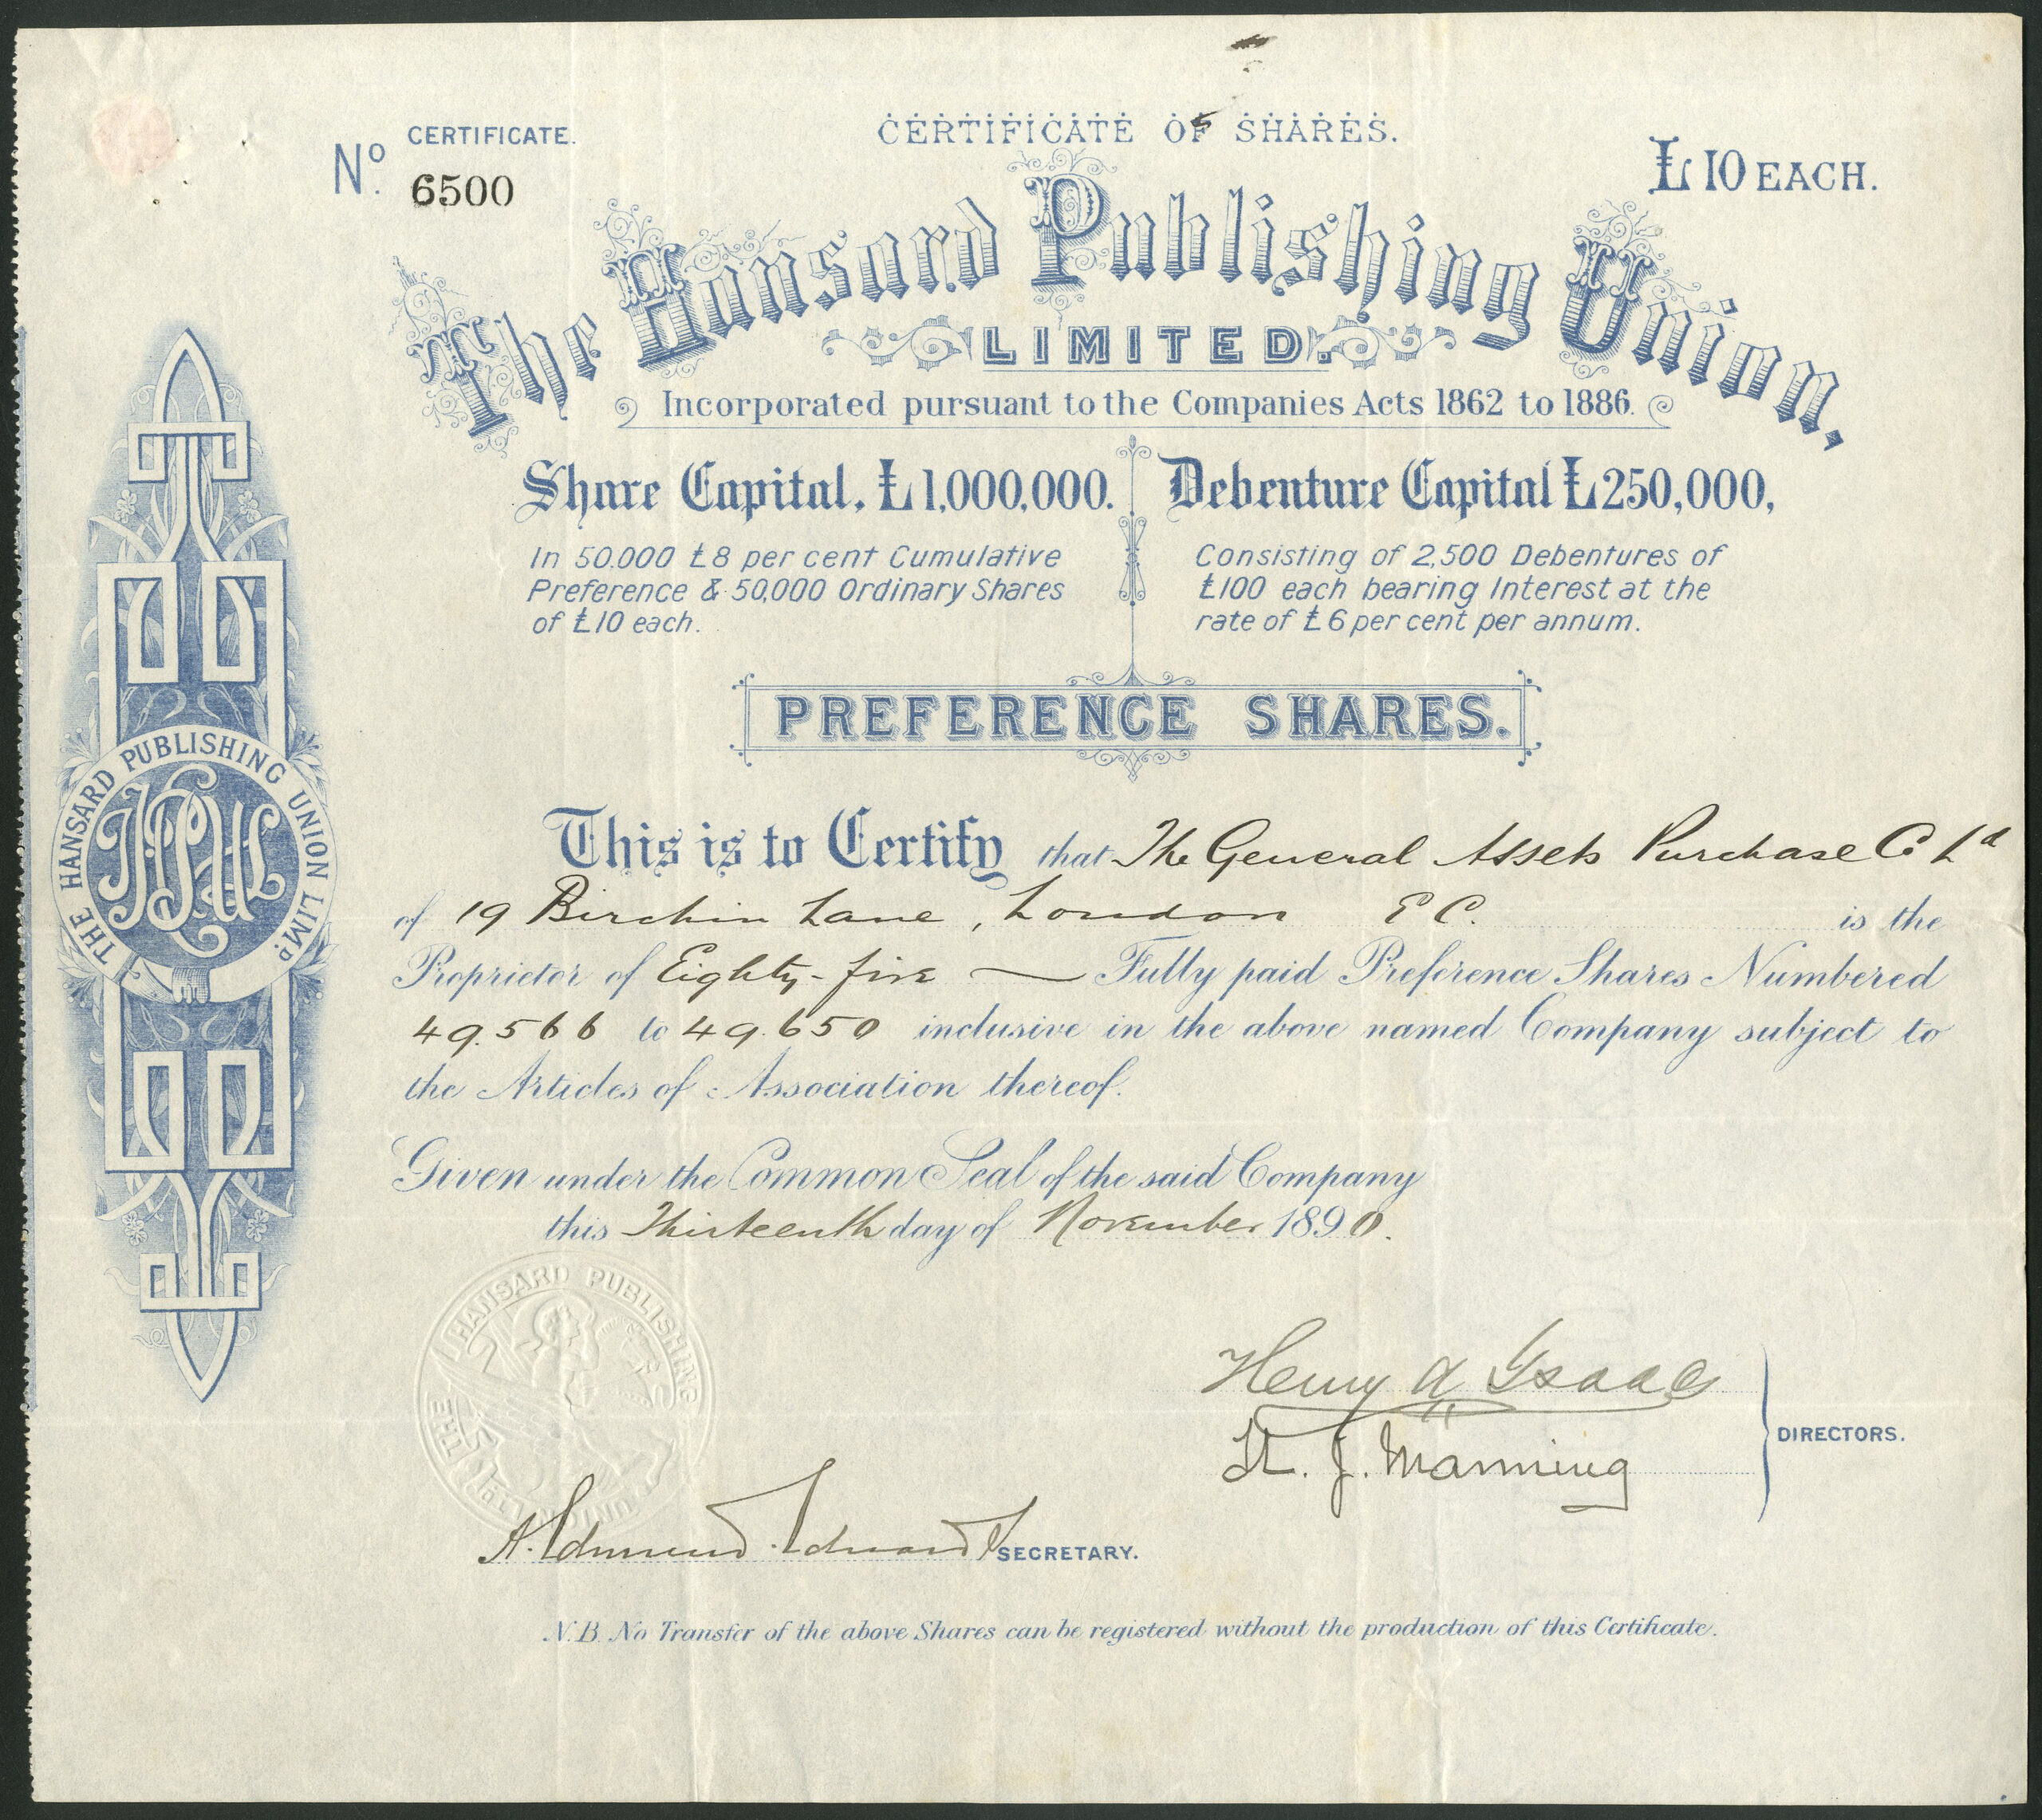 CERTIFICATE.
Nº. 6500
CERTIFICATE OF SHARES.
£10 EACH.
The Hansard Publishing Union,
LIMITED.
Incorporated pursuant to the Companies Acts 1862 to 1886.
Share Capital, £1,000,000.
In 50.000 £8 per cent Cumulative
Preference & 50,000 Ordinary Shares
of £10 each.
Debenture Capital £250,000,
Consisting of 2,500 Debentures of
£100 each bearing Interest at the
rate of £6 per cent per annum.
PREFERENCE SHARES.
THE HANSARD PUBLISHING UNION LIMD.
HPUL
This is to Certify that The General Assets Purchase Co Ld
of 19 Birchin Lane, London E C. is the
Proprietor of Eighty-five — Fully paid Preference Shares Numbered
49.566 to 49.650 inclusive in the above named Company subject to
the Articles of Association thereof.
Given under the Common Seal of the said Company
this Thirteenth day of November 1890.
THE HANSARD PUBLISHING UNION
Henry A Isaacs
J. Manning
DIRECTORS.
A. Edmund Edwards SECRETARY.
N.B. No Transfer of the above Shares can be registered without the production of this Certificate.